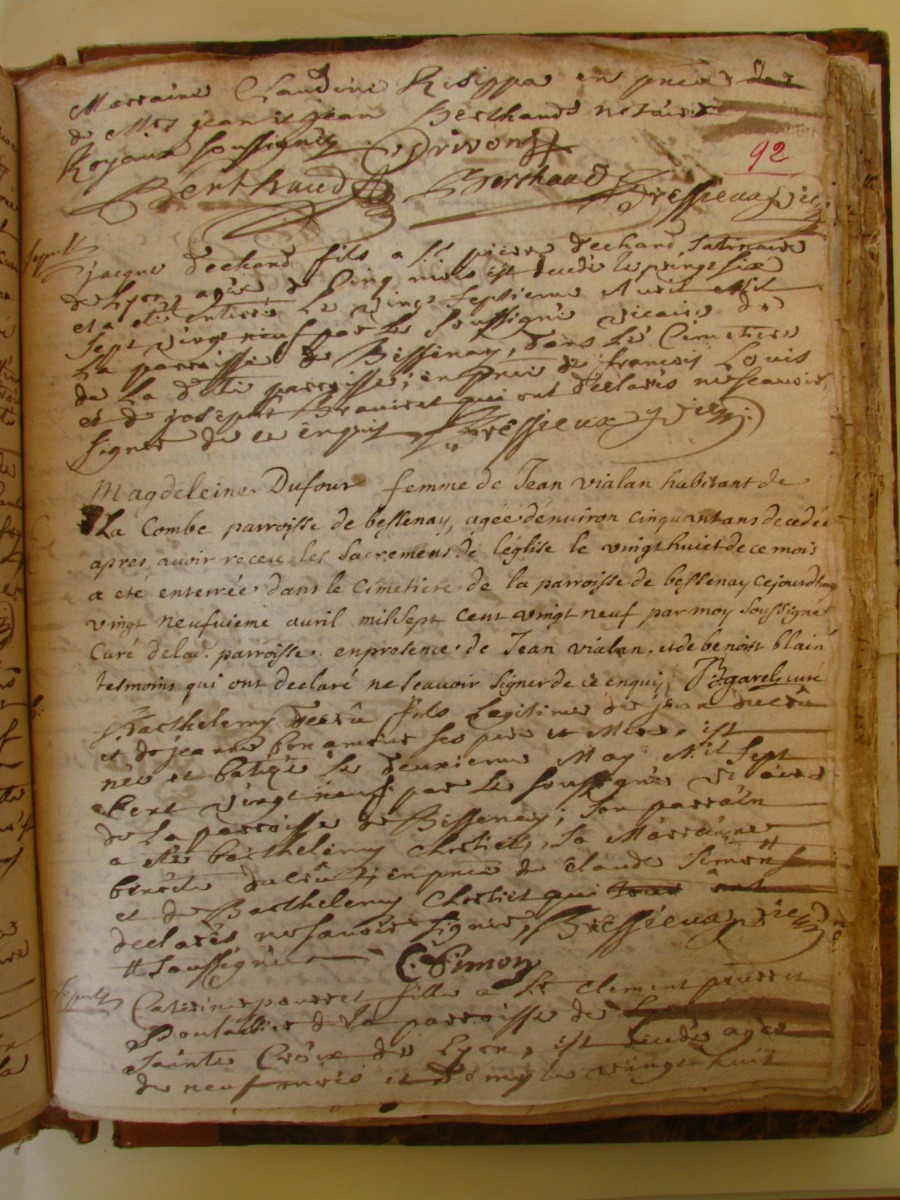 Marraine Claudine Risippa en pnce
de Mrs jean et jean Berthaud notaires
Royaux soussignés Drivon
92
Berthaud Berthaud Bressieux vic.
sepult
jacque dechand fils a Sr pierre dechand satinaire
de Lyon agée de Cinq mois est decedé le vingt six
et a eté enterré Le vingt septieme avril
sept vingt neuf par Le soussigné vicaire de
La parroisse de Bessenay, dans Le Cimetiere
de La dite parroisse, en pnce de francois Louis
et de joseph qui ont declarés ne sçauoir
signer de ce enquis Bressieux vic.
Magdeleine Dufour femme de Jean vialan habitant de
La Combe parroisse de bessenay, agée d'enuiron cinquant ans decedée
apres auoir receu les sacremens de l'église le vingt huict de ce mois
a eté enterrée dans le Cimetiere de la parroisse de bessenay cejourdhuy
vingt neufuieme auril mil sept cent vingt neuf par moy soussigné
Curé de lad. parroisse en presence de Jean vialan, et de benoist blain
tesmoins qui ont declaré ne sçauoir signer de ce enquis curé
Barthelemy fils Legitime de jean
et de jeanne bonamour ses pere et Mere, est
née et batizé le deuxieme May Mil sept
Cent vingt neuf par Le soussigné vicaire
de La parroisse de Bessenay; son parrain
a eté barthelemy Chretiet, sa Marraine
benoite en pnce de Claude Simon
et de Barthelemy Chretiet qui ont
declarés ne savoir signer, Bressieux vic.
soussigné C. Simon
sepult
Caterine pourret fille a Sr Clement pourret
de La parroisse de
Sainte Croix de Lyon, est decedé agée
de neuf mois et demy le vingt huit